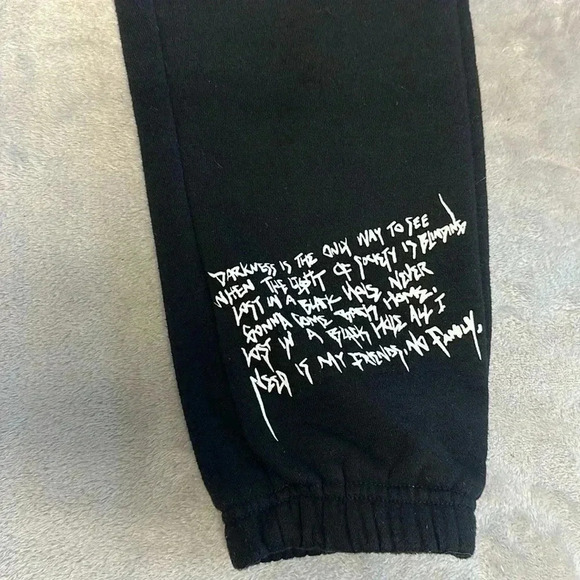 DARKNESS IS THE ONLY WAY TO SEE
WHEN THE LIGHT OF SOCIETY IS BLINDING
LOST IN A BLACK HOLE NEVER
GONNA COME BACK HOME,
LOST IN A BLACK HOLE ALL I
NEED IS MY FRIENDS, NO FAMILY.